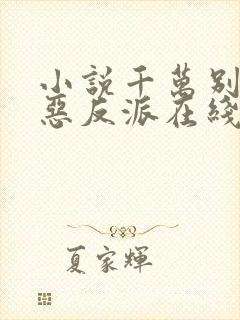 小說千萬别
惡反派在綫
夏家輝